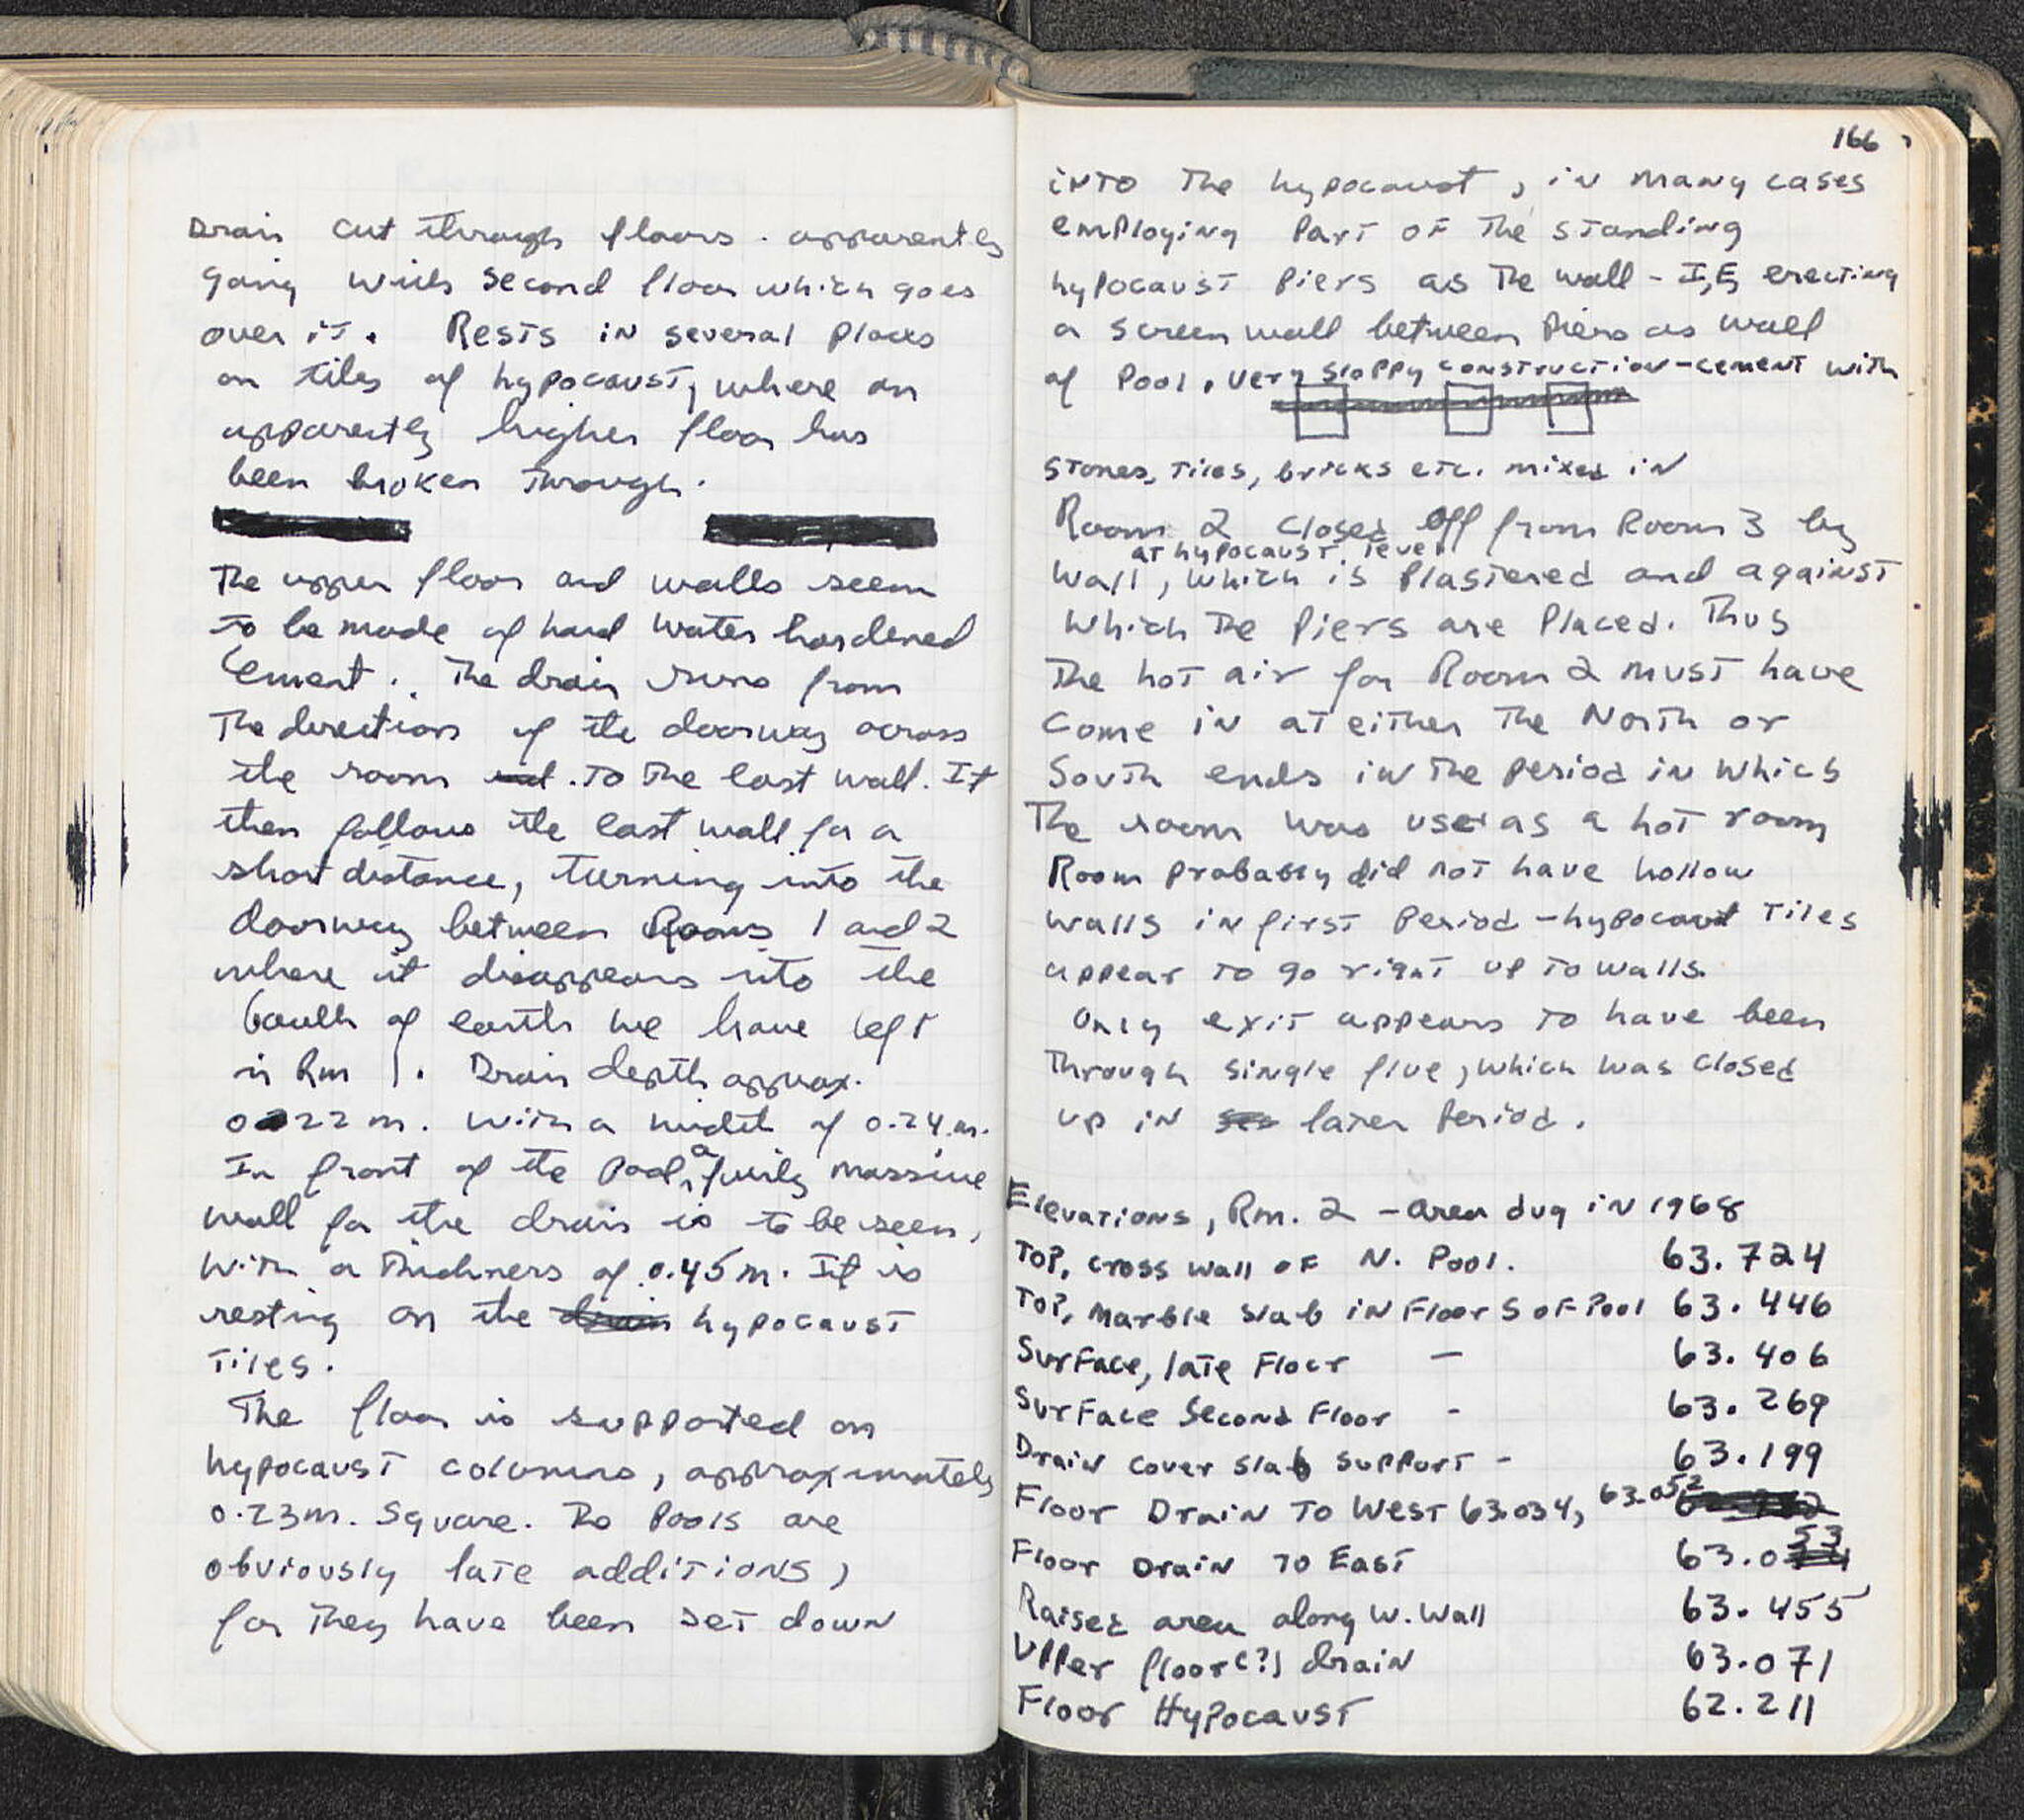 Drain cut through floors. apparently
going with second floor which goes
over it. Rests in several places
on tiles of hypocaust, where an
apparently higher floor has
been broken through.
The upper floor and walls seem
to be made of hard water hardened
cement. The drain runs from
The direction of the doorway across
the room to the east wall. It
then follows the east wall for a
short distance, turning into the
doorway between Rooms 1 and 2
where it disappears into the
baulk of earth we have left
in Rm 1. Drain depth approx.
0.22 m. with a width of 0.24 m.
In front of the Pool, a fairly massive
wall for the drain is to be seen,
with a thickness of 0.45 m. It is
resting on the hypocaust
Tiles.
The floor is supported on
hypocaust columns, approximately
0.23m. Square. Pools are
obviously late additions,
for they have been set down
166
into The hypocaust, in many cases
employing Part of The standing
hypocaust Piers as The wall - I,E, erecting
a screen wall between Piers as wall
of Pool. very sloppy construction-cement with
stones, Tiles, bricks etc. mixed in
Room 2 closed off from Room 3 by
at hypocaust level
wall, which is Plastered and against
which The Piers are Placed. Thus
The hot air for Room 2 must have
come in at either The North or
South ends in The Period in which
The room was used as a hot room
Room probably did not have hollow
walls in first Period - hypocaust Tiles
appear to go right up to walls.
Only exit appears to have been
Through single flue, which was closed
up in later Period.
Elevations, Rm. 2 - area dug in 1968
Top, Cross wall of N. Pool. 63.724
Top, Marble slab in Floor S of Pool 63.446
Surface, late Floor - 63.406
Surface Second Floor - 63.269
Drain cover slab support - 63.199
Floor Drain To West 63.034, 63.052
Floor Drain To East 63.053
Raised area along W. Wall 63.455
Upper floor(?) drain 63.071
Floor Hypocaust 62.211